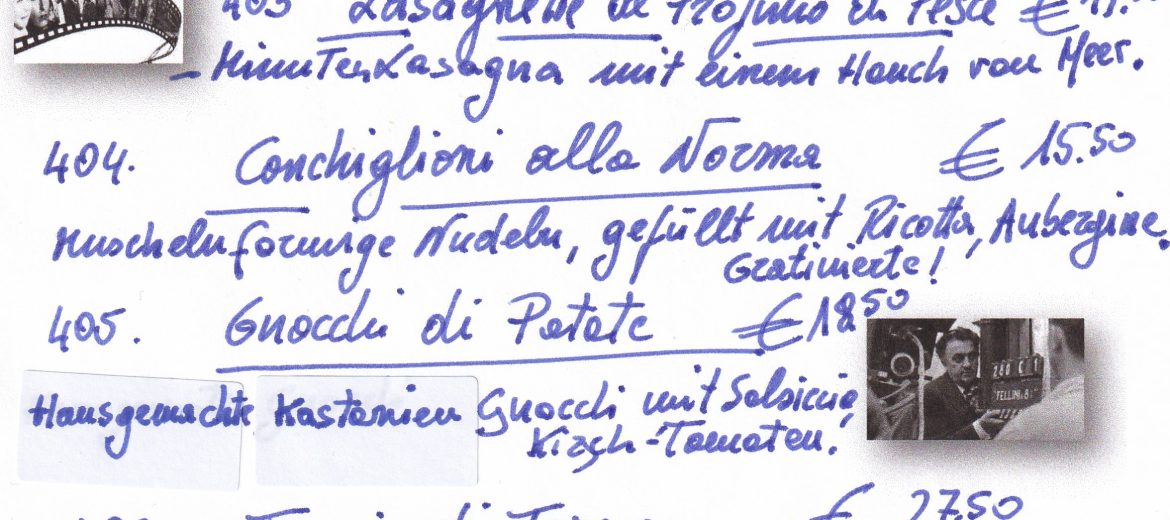 403 Lasagnette al Profumo di Pesce €
- MinutenLasagna mit einem Hauch von Meer.
404. Conchiglioni alla Norma € 15.50
Muschelnförmige Nudeln, gefüllt mit Ricotta, Aubergine,
Gratinierte!
405. Gnocchi di Patate € 18.50
Hausgemachte Kastanien Gnocchi mit Salsiccia,
Kirsch-Tomaten!
€ 27.50